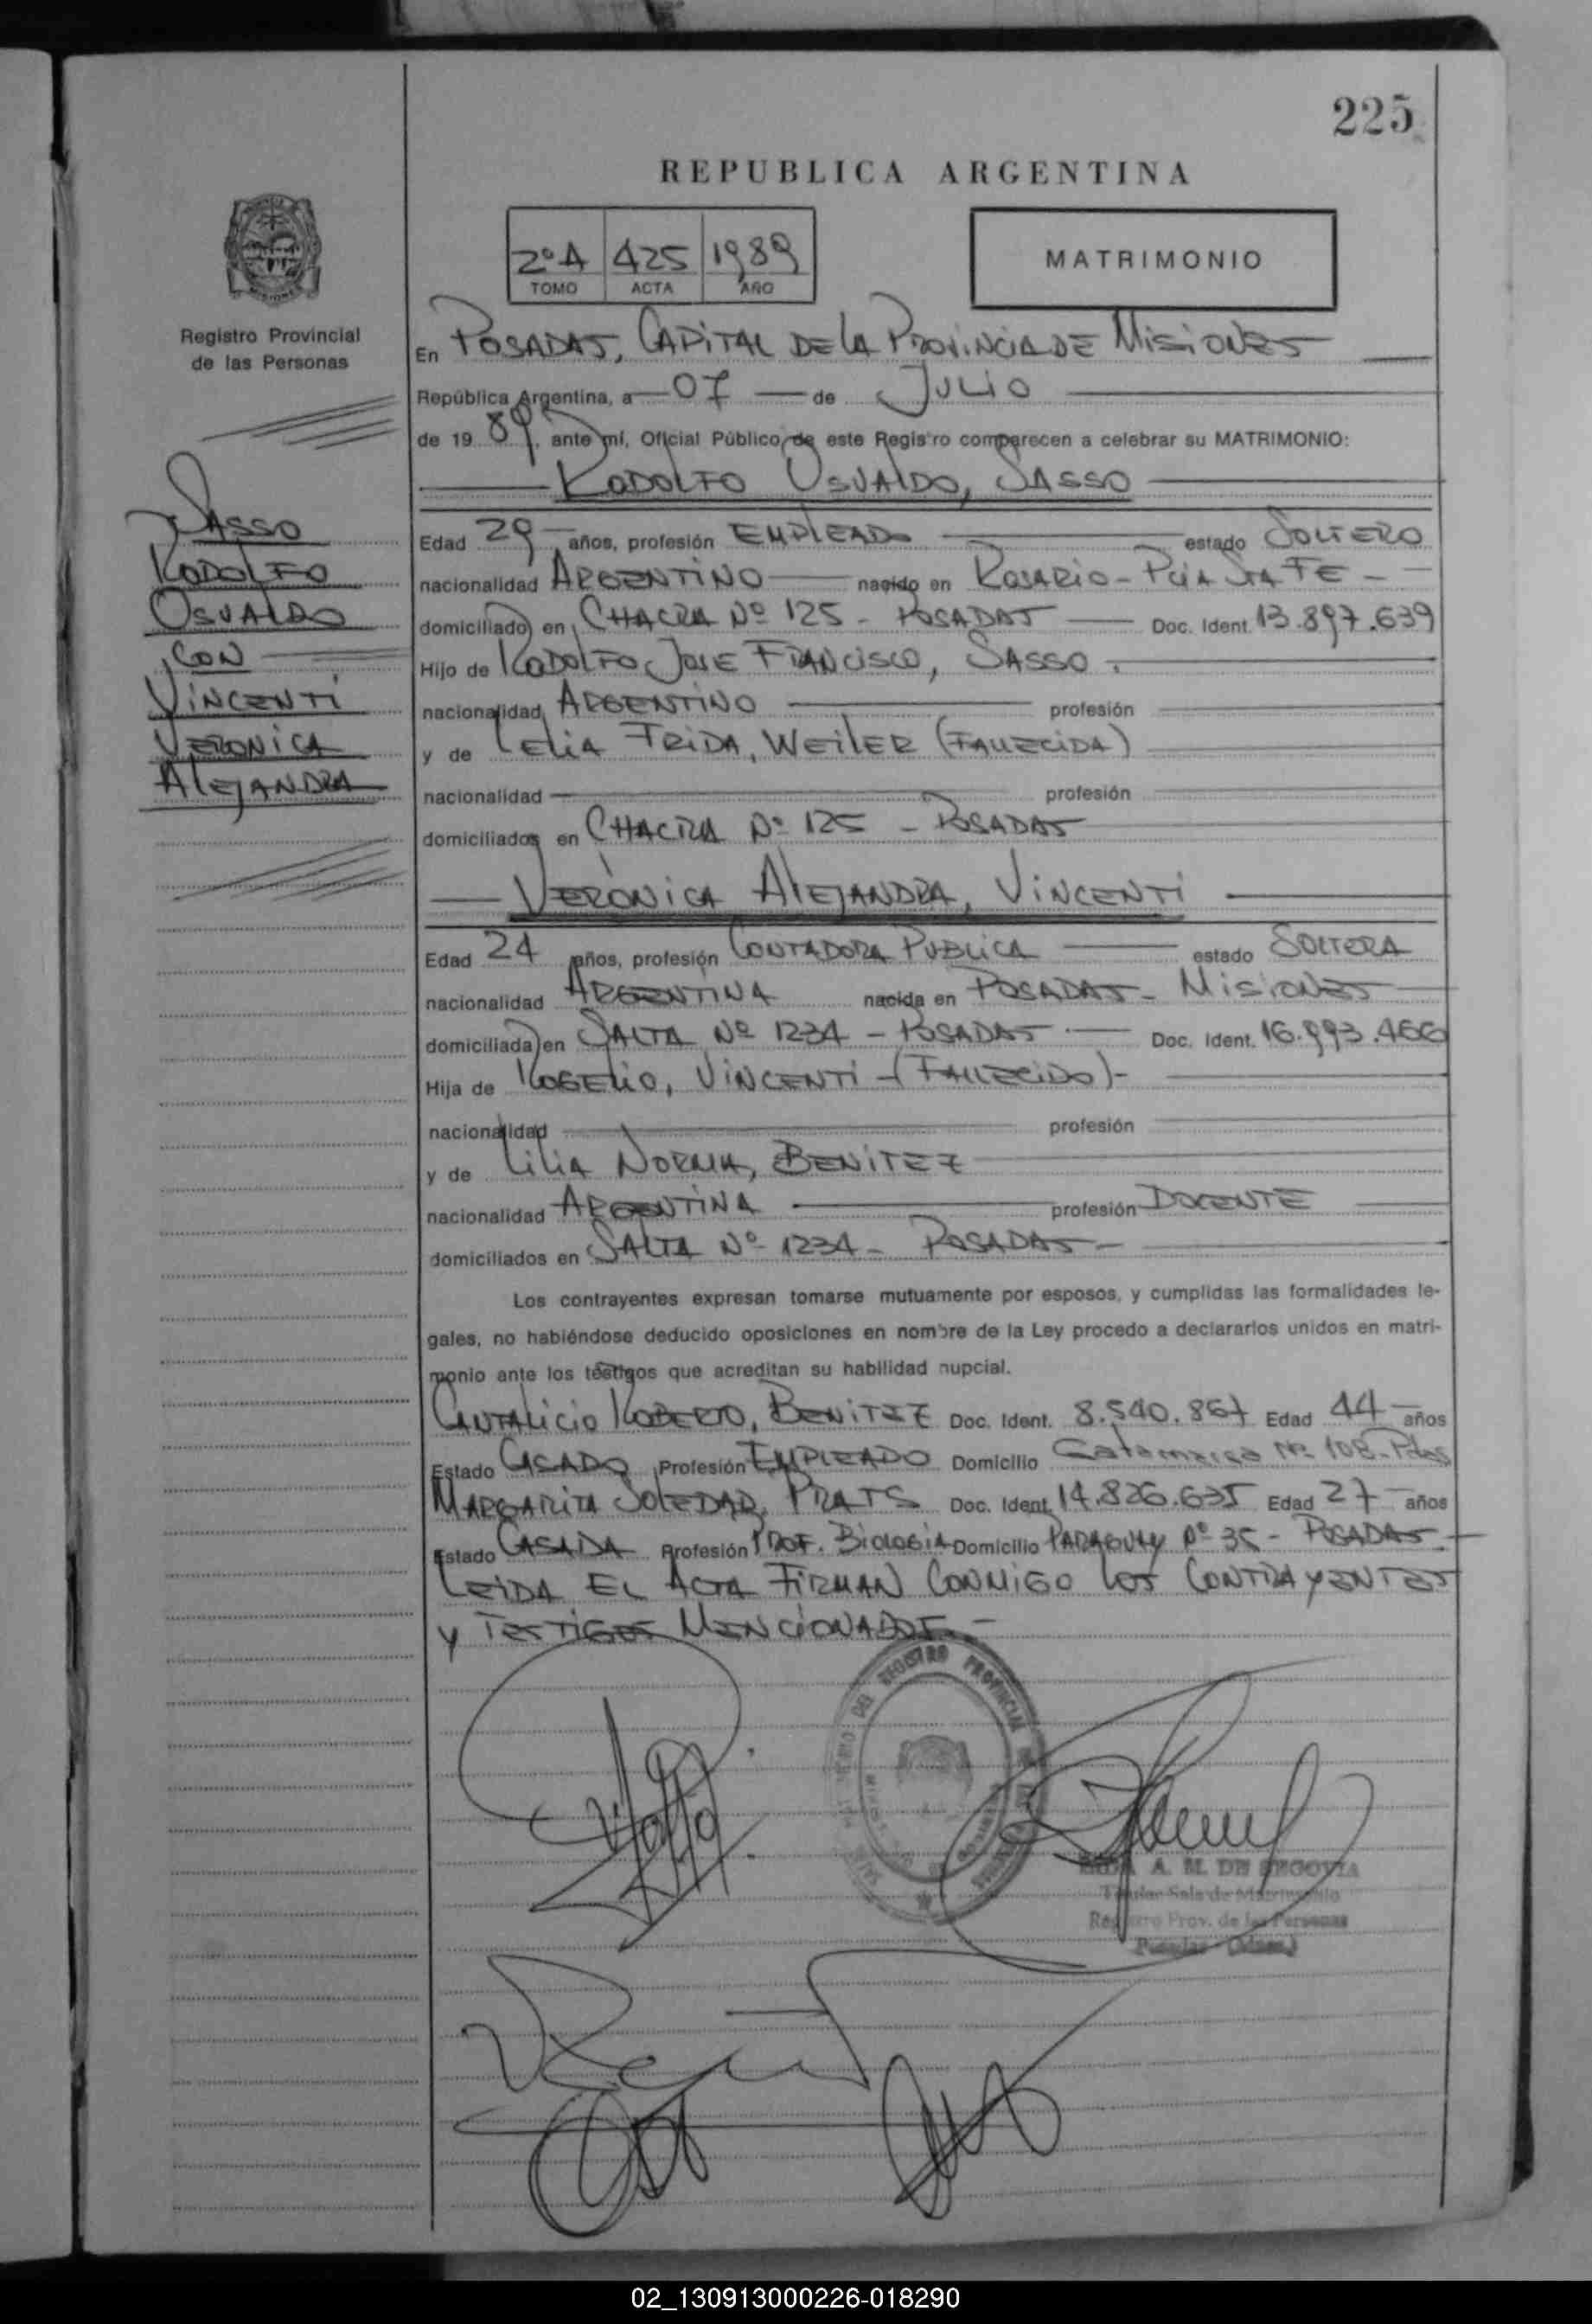 225
REPUBLICA ARGENTINA
2º A 425 1989
TOMO ACTA AÑO
MATRIMONIO
Registro Provincial
de las Personas
SASSO
RODOLFO
OSVALDO
CON
VINCENTI
VERONICA
ALEJANDRA
En POSADAS, CAPITAL DE LA PROVINCIA DE MISIONES
República Argentina, a 07 de JULIO
de 19 89, ante mí, Oficial Público de este Registro comparecen a celebrar su MATRIMONIO:
RODOLFO OSVALDO, SASSO
Edad 29 años, profesión EMPLEADO estado SOLTERO
nacionalidad ARGENTINO nacido en ROSARIO - PCIA STA FE -
domiciliado en CHACRA Nº 125 - POSADAS Doc. Ident. 13.897.639
Hijo de RODOLFO JOSE FRANCISCO, SASSO.
nacionalidad ARGENTINO profesión
y de LELIA FRIDA, WEILER (FALLECIDA)
nacionalidad profesión
domiciliados en CHACRA Nº 125 - POSADAS
VERONICA ALEJANDRA, VINCENTI
Edad 24 años, profesión CONTADORA PUBLICA estado SOLTERA
nacionalidad ARGENTINA nacida en POSADAS - MISIONES
domiciliada en SALTA Nº 1234 - POSADAS - Doc. Ident. 16.993.466
Hija de ROGELIO, VINCENTI - (FALLECIDO) -
nacionalidad profesión
y de LILIA NORMA, BENITEZ
nacionalidad ARGENTINA profesión DOCENTE
domiciliados en SALTA Nº 1234 - POSADAS -
Los contrayentes expresan tomarse mutuamente por esposos, y cumplidas las formalidades le-
gales, no habiéndose deducido oposiciones en nombre de la Ley procedo a declararlos unidos en matri-
monio ante los testigos que acreditan su habilidad nupcial.
CANTALICIO ROBERTO, BENITEZ Doc. Ident. 8.540.867 Edad 44 años
Estado CASADO Profesión EMPLEADO Domicilio Catamarca Nº 108 - Pdas
MARGARITA SOLEDAD, PRATS Doc. Ident. 14.826.635 Edad 27 años
Estado CASADA Profesión PROF. BIOLOGIA Domicilio PARAGUAY Nº 35 - POSADAS -
LEIDA EL ACTA FIRMAN CONMIGO LOS CONTRAYENTES
Y TESTIGOS MENCIONADOS. -
DEL REGISTRO PROVINCIAL DE LAS
A. M. DE SEGOVIA
Titular Sala de Matrimonio
Registro Prov. de las Personas
Posadas (Mnes.)
02_130913000226-018290